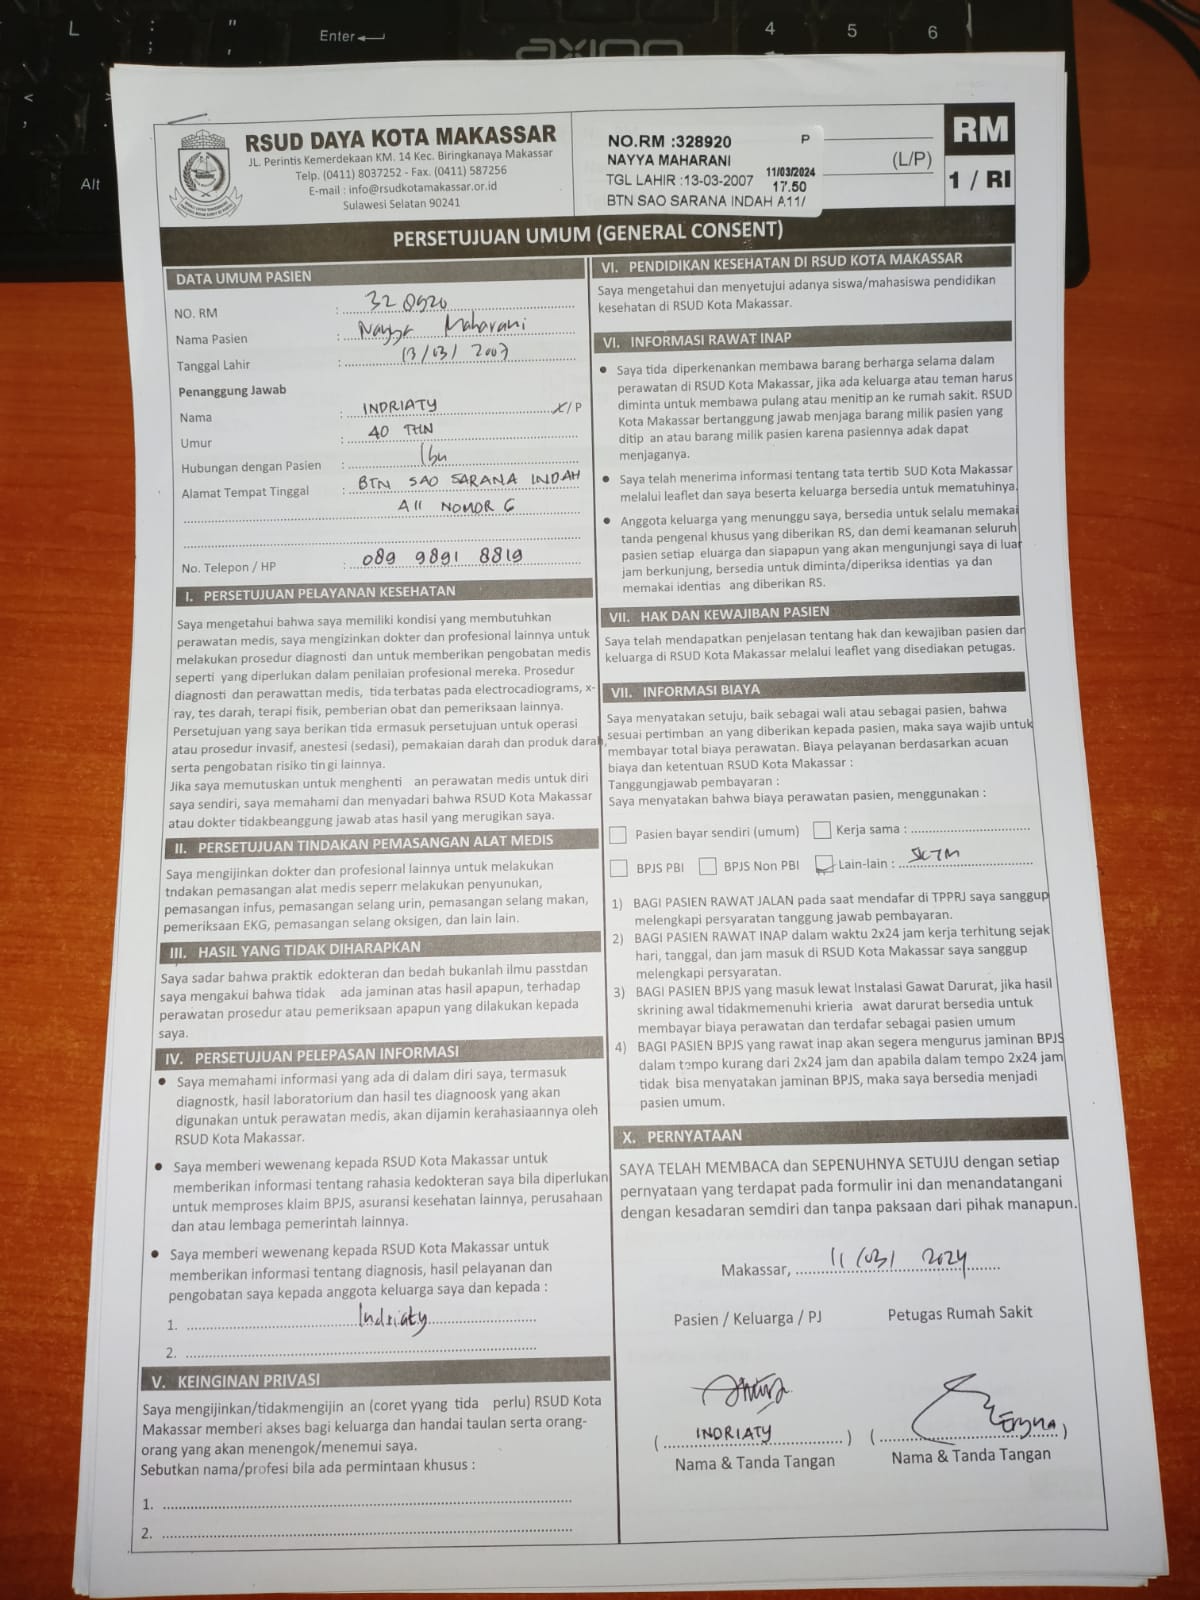 L
;
:
"
'
Enter
4
5
6
<
,
Alt
RSUD DAYA KOTA MAKASSAR
JL. Perintis Kemerdekaan KM. 14 Kec. Biringkanaya Makassar
Telp. (0411) 8037252 - Fax. (0411) 587256
E-mail : info@rsudkotamakassar.or.id
Sulawesi Selatan 90241
NO.RM :328920 P
NAYYA MAHARANI 11/03/2024
TGL LAHIR :13-03-2007 17.50
BTN SAO SARANA INDAH A11/
(L/P)
RM
1 / RI
PERSETUJUAN UMUM (GENERAL CONSENT)
DATA UMUM PASIEN
NO. RM : 328920
Nama Pasien : Nayya Maharani
Tanggal Lahir : 13/03/2007
Penanggung Jawab
Nama : INDRIATY L/P
Umur : 40 THN
Hubungan dengan Pasien : Ibu
Alamat Tempat Tinggal : BTN SAO SARANA INDAH
A11 NOMOR 6
No. Telepon / HP : 089 9891 8819
I. PERSETUJUAN PELAYANAN KESEHATAN
Saya mengetahui bahwa saya memiliki kondisi yang membutuhkan
perawatan medis, saya mengizinkan dokter dan profesional lainnya untuk
melakukan prosedur diagnosti dan untuk memberikan pengobatan medis
seperti yang diperlukan dalam penilaian profesional mereka. Prosedur
diagnosti dan perawattan medis, tida terbatas pada electrocadiograms, x-
ray, tes darah, terapi fisik, pemberian obat dan pemeriksaan lainnya.
Persetujuan yang saya berikan tida ermasuk persetujuan untuk operasi
atau prosedur invasif, anestesi (sedasi), pemakaian darah dan produk darah,
serta pengobatan risiko tin gi lainnya.
Jika saya memutuskan untuk menghenti an perawatan medis untuk diri
saya sendiri, saya memahami dan menyadari bahwa RSUD Kota Makassar
atau dokter tidakbeanggung jawab atas hasil yang merugikan saya.
II. PERSETUJUAN TINDAKAN PEMASANGAN ALAT MEDIS
Saya mengijinkan dokter dan profesional lainnya untuk melakukan
tndakan pemasangan alat medis seperr melakukan penyunukan,
pemasangan infus, pemasangan selang urin, pemasangan selang makan,
pemeriksaan EKG, pemasangan selang oksigen, dan lain lain.
III. HASIL YANG TIDAK DIHARAPKAN
Saya sadar bahwa praktik edokteran dan bedah bukanlah ilmu passtdan
saya mengakui bahwa tidak ada jaminan atas hasil apapun, terhadap
perawatan prosedur atau pemeriksaan apapun yang dilakukan kepada
saya.
IV. PERSETUJUAN PELEPASAN INFORMASI
• Saya memahami informasi yang ada di dalam diri saya, termasuk
diagnostk, hasil laboratorium dan hasil tes diagnoosk yang akan
digunakan untuk perawatan medis, akan dijamin kerahasiaannya oleh
RSUD Kota Makassar.
• Saya memberi wewenang kepada RSUD Kota Makassar untuk
memberikan informasi tentang rahasia kedokteran saya bila diperlukan
untuk memproses klaim BPJS, asuransi kesehatan lainnya, perusahaan
dan atau lembaga pemerintah lainnya.
• Saya memberi wewenang kepada RSUD Kota Makassar untuk
memberikan informasi tentang diagnosis, hasil pelayanan dan
pengobatan saya kepada anggota keluarga saya dan kepada :
1. Indriaty
2.
V. KEINGINAN PRIVASI
Saya mengijinkan/tidakmengijin an (coret yyang tida perlu) RSUD Kota
Makassar memberi akses bagi keluarga dan handai taulan serta orang-
orang yang akan menengok/menemui saya.
Sebutkan nama/profesi bila ada permintaan khusus :
1.
2.
VI. PENDIDIKAN KESEHATAN DI RSUD KOTA MAKASSAR
Saya mengetahui dan menyetujui adanya siswa/mahasiswa pendidikan
kesehatan di RSUD Kota Makassar.
VI. INFORMASI RAWAT INAP
• Saya tida diperkenankan membawa barang berharga selama dalam
perawatan di RSUD Kota Makassar, jika ada keluarga atau teman harus
diminta untuk membawa pulang atau menitip an ke rumah sakit. RSUD
Kota Makassar bertanggung jawab menjaga barang milik pasien yang
ditip an atau barang milik pasien karena pasiennya adak dapat
menjaganya.
• Saya telah menerima informasi tentang tata tertib SUD Kota Makassar
melalui leaflet dan saya beserta keluarga bersedia untuk mematuhinya.
• Anggota keluarga yang menunggu saya, bersedia untuk selalu memakai
tanda pengenal khusus yang diberikan RS, dan demi keamanan seluruh
pasien setiap eluarga dan siapapun yang akan mengunjungi saya di luar
jam berkunjung, bersedia untuk diminta/diperiksa identias ya dan
memakai identias ang diberikan RS.
VII. HAK DAN KEWAJIBAN PASIEN
Saya telah mendapatkan penjelasan tentang hak dan kewajiban pasien dan
keluarga di RSUD Kota Makassar melalui leaflet yang disediakan petugas.
VII. INFORMASI BIAYA
Saya menyatakan setuju, baik sebagai wali atau sebagai pasien, bahwa
sesuai pertimban an yang diberikan kepada pasien, maka saya wajib untuk
membayar total biaya perawatan. Biaya pelayanan berdasarkan acuan
biaya dan ketentuan RSUD Kota Makassar :
Tanggungjawab pembayaran :
Saya menyatakan bahwa biaya perawatan pasien, menggunakan :
Pasien bayar sendiri (umum) Kerja sama :
BPJS PBI BPJS Non PBI Lain-lain : SKTM
1) BAGI PASIEN RAWAT JALAN pada saat mendafar di TPPRJ saya sanggup
melengkapi persyaratan tanggung jawab pembayaran.
2) BAGI PASIEN RAWAT INAP dalam waktu 2x24 jam kerja terhitung sejak
hari, tanggal, dan jam masuk di RSUD Kota Makassar saya sanggup
melengkapi persyaratan.
3) BAGI PASIEN BPJS yang masuk lewat Instalasi Gawat Darurat, jika hasil
skrining awal tidakmemenuhi krieria awat darurat bersedia untuk
membayar biaya perawatan dan terdafar sebagai pasien umum
4) BAGI PASIEN BPJS yang rawat inap akan segera mengurus jaminan BPJS
dalam tempo kurang dari 2x24 jam dan apabila dalam tempo 2x24 jam
tidak bisa menyatakan jaminan BPJS, maka saya bersedia menjadi
pasien umum.
X. PERNYATAAN
SAYA TELAH MEMBACA dan SEPENUHNYA SETUJU dengan setiap
pernyataan yang terdapat pada formulir ini dan menandatangani
dengan kesadaran semdiri dan tanpa paksaan dari pihak manapun.
Makassar, 11/03/2024
Pasien / Keluarga / PJ Petugas Rumah Sakit
( INDRIATY ) ( )
Nama & Tanda Tangan Nama & Tanda Tangan